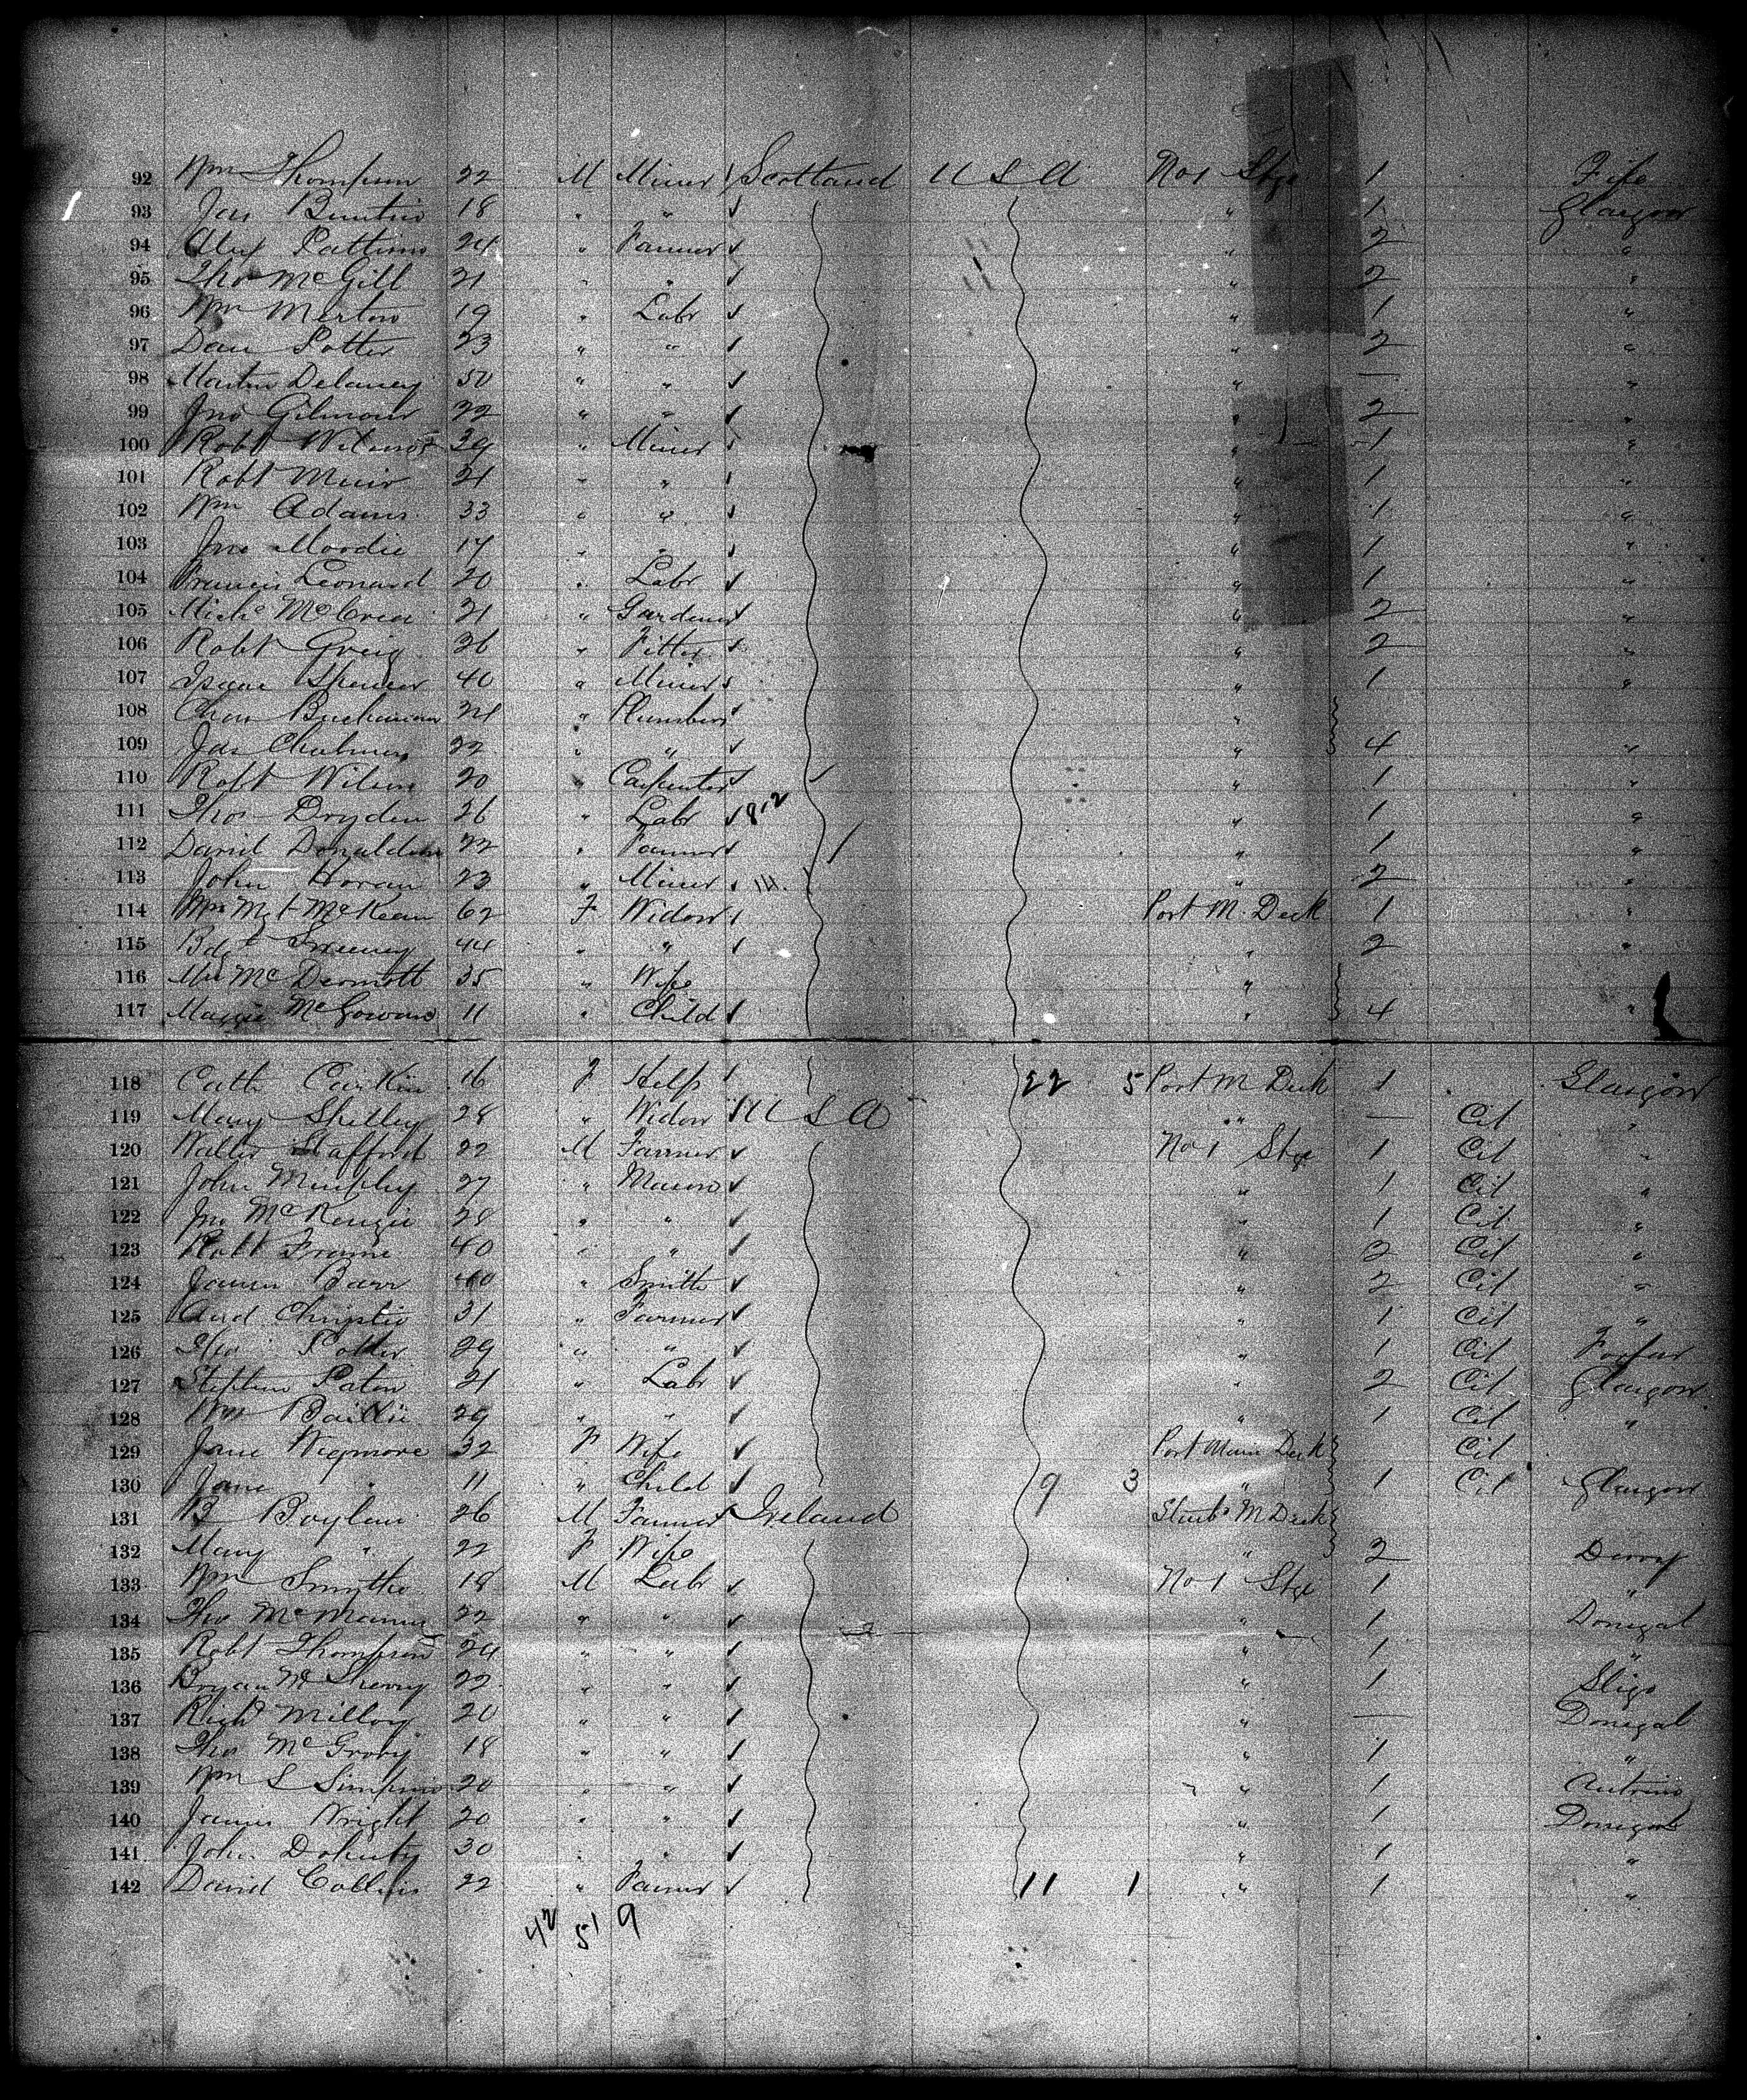 92 Wm Thompson 22 M Miner Scotland U S A No 1 Stge 1 Fife
93 Jas Buntin 18 " " 1 Glasgow
94 Alex 24 " Farmer " 2 "
95 Tho McGill 21 " " " 2 "
96 Wm Merton 19 " Labr " 1 "
97 Dan Potter 23 " " " 2 "
98 Martin Delaney 50 " " " — "
99 Jno Gilmour 22 " " " 2 "
100 Robt Wilson 39 " Miner " 1 "
101 Robt Muir 21 " " " 1 "
102 Wm Adams 33 " " " 1 "
103 Jno Moodie 17 " " " 1 "
104 Francis Leonard 20 " Labr " 1 "
105 Mich McCrea 21 " Gardener " 2 "
106 Robt Greig 26 " Fitter " 2 "
107 Isaac Spencer 40 " Miner " 1 "
108 Chas Buchanan 24 " Plumber "
109 Jas Chalmers 22 " " " 4 "
110 Robt Wilson 20 " Carpenter " 1 "
111 Thos Dryden 26 " Labr " 1 "
112 David Donaldson 22 " Farmer " 1 "
113 John Horan 23 " Miner " 2 "
114 Mrs Mgt McKean 62 F Widow Port M. Deck 1 "
115 Bdgt Sweeney 44 " " " 2 "
116 Mrs McDermott 35 " Wife "
117 Maggie McGowan 11 " Child " 4 "
118 Cath 16 F Help 22 5 Port M Deck 1 Glasgow
119 Mary Skelley 28 " Widow U S A " — Cit "
120 Walter Stafford 22 M Farmer No 1 Stge 1 Cit "
121 John Murphy 27 " Mason " 1 Cit "
122 Jno McKenzie 28 " " " 1 Cit "
123 Robt Frame 40 " " " 2 Cit "
124 James Barr 40 " Smith " 2 Cit "
125 And Christie 31 " Farmer " 1 Cit "
126 Tho Potter 29 " " " 1 Cit Forfar
127 Stephen Paton 21 " Labr " 2 Cit Glasgow
128 Wm Baillie 29 " " " 1 Cit "
129 Jane Wigmore 32 F Wife Port Main Deck Cit
130 Jane " 11 " Child 9 3 " 1 Cit Glasgow
131 B Boylan 26 M Farmer Ireland M Deck
132 Mary " 22 F Wife " 2 Derry
133 Wm Smythe 18 M Labr No 1 Stge 1 "
134 Tho McManus 22 " " " 1 Donegal
135 Robt Thompson 24 " " " 1 "
136 Bryan McSherry 22 " " " 1 Sligo
137 Richd Milloy 20 " " " — Donegal
138 Thos McGrory 18 " " " 1 "
139 Wm S Simpson 20 " " " 1 Antrim
140 James Wright 20 " " " 1 Donegal
141 John Doherty 30 " " " 1 "
142 David Collins 22 " Farmer 11 1 " 1 "
42 51 9